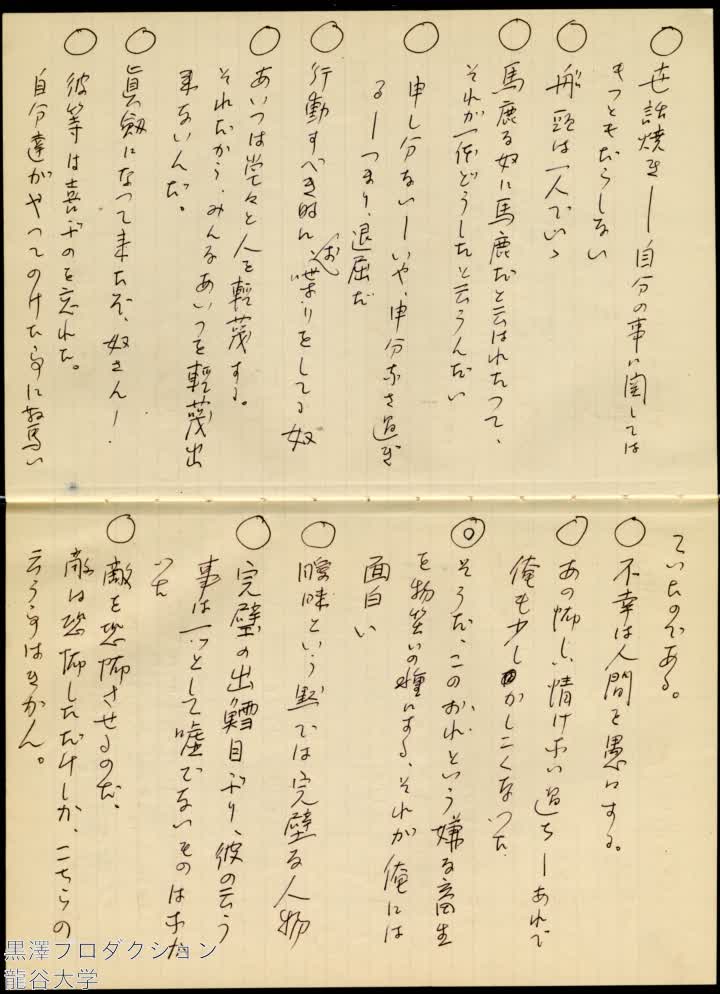 ○ 世話焼き―自分の事に関しては
もっともだらしない
○ 船頭は一人でいゝ
○ 馬鹿な奴に馬鹿だと云はれたって、
それが一体どうしたと云うんだい
○ 申し分ない―いや、申分なさ過ぎ
る―つまり、退屈だ
○ 行動すべき時に、お喋りをしてる奴
○ あいつは堂々と人を軽蔑する。
それだから、みんなあいつを軽蔑出
来ないんだ。
○ 眞剣になって来たぞ、奴さん!
○ 彼等は喜ぶのを忘れた。
自分達がやってのけた事に驚い
ていたのである。
○ 不幸は人間を愚にする。
○ あの怖しい情けない過ち―あれで
俺も少しかしこくなった
◎ そうだ、このおれという嫌な畜生
を物笑いの種にする、それが俺には
面白い
○ 曖昧という点では完璧な人物
○ 完璧の出鱈目ぶり、彼の云う
事は一つとして嘘でないものはなか
った
○ 敵を恐怖させるのだ、
敵は恐怖しただけしか、こちらの
云う事はきかん。
黒澤プロダクション
龍谷大学